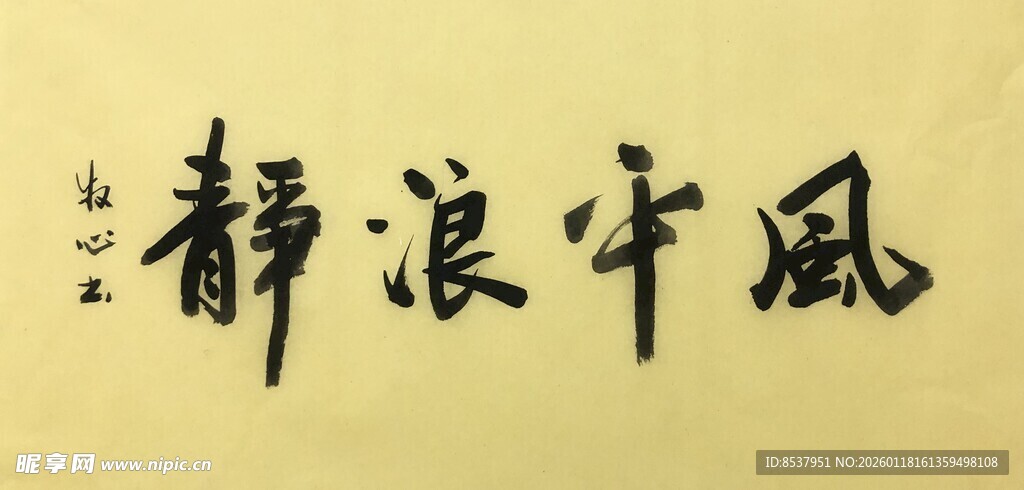 風平浪靜
牧心书
昵享网 www.nipic.cn
ID:8537951 NO:20260118161359498108